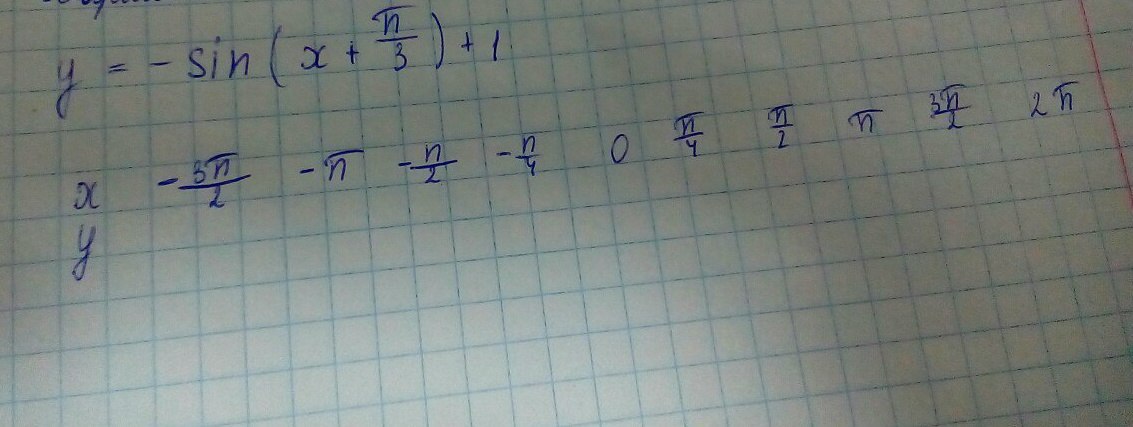 y = - sin(x + π/3) + 1
x -3π/2 -π -π/2 -π/4 0 π/4 π/2 π 3π/2 2π
y